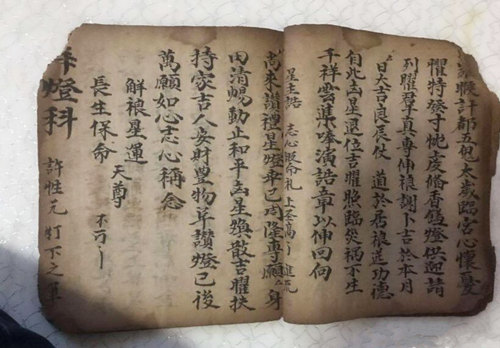 猴計都五鬼太歲臨宮心懷憂
懼特發于忱虔俻香燈供迎請
列曜尊真專伸禳謝卜吉於本月
日大吉良辰仗 道於居禳送功德
自此凶星退位吉曜臨災禍不生
千祥雲集奉演誥章以伸回向
星主誥 志心皈命礼
尚來讚禮星燈畢已周隆專願 身
田清暢動正和平凶星煥散吉曜扶
持家吉人安財豐物阜讚燈已後
萬願如心志心稱念
解禳星運
天尊
長生保命
不可
燈科
許性元 灯下之筆